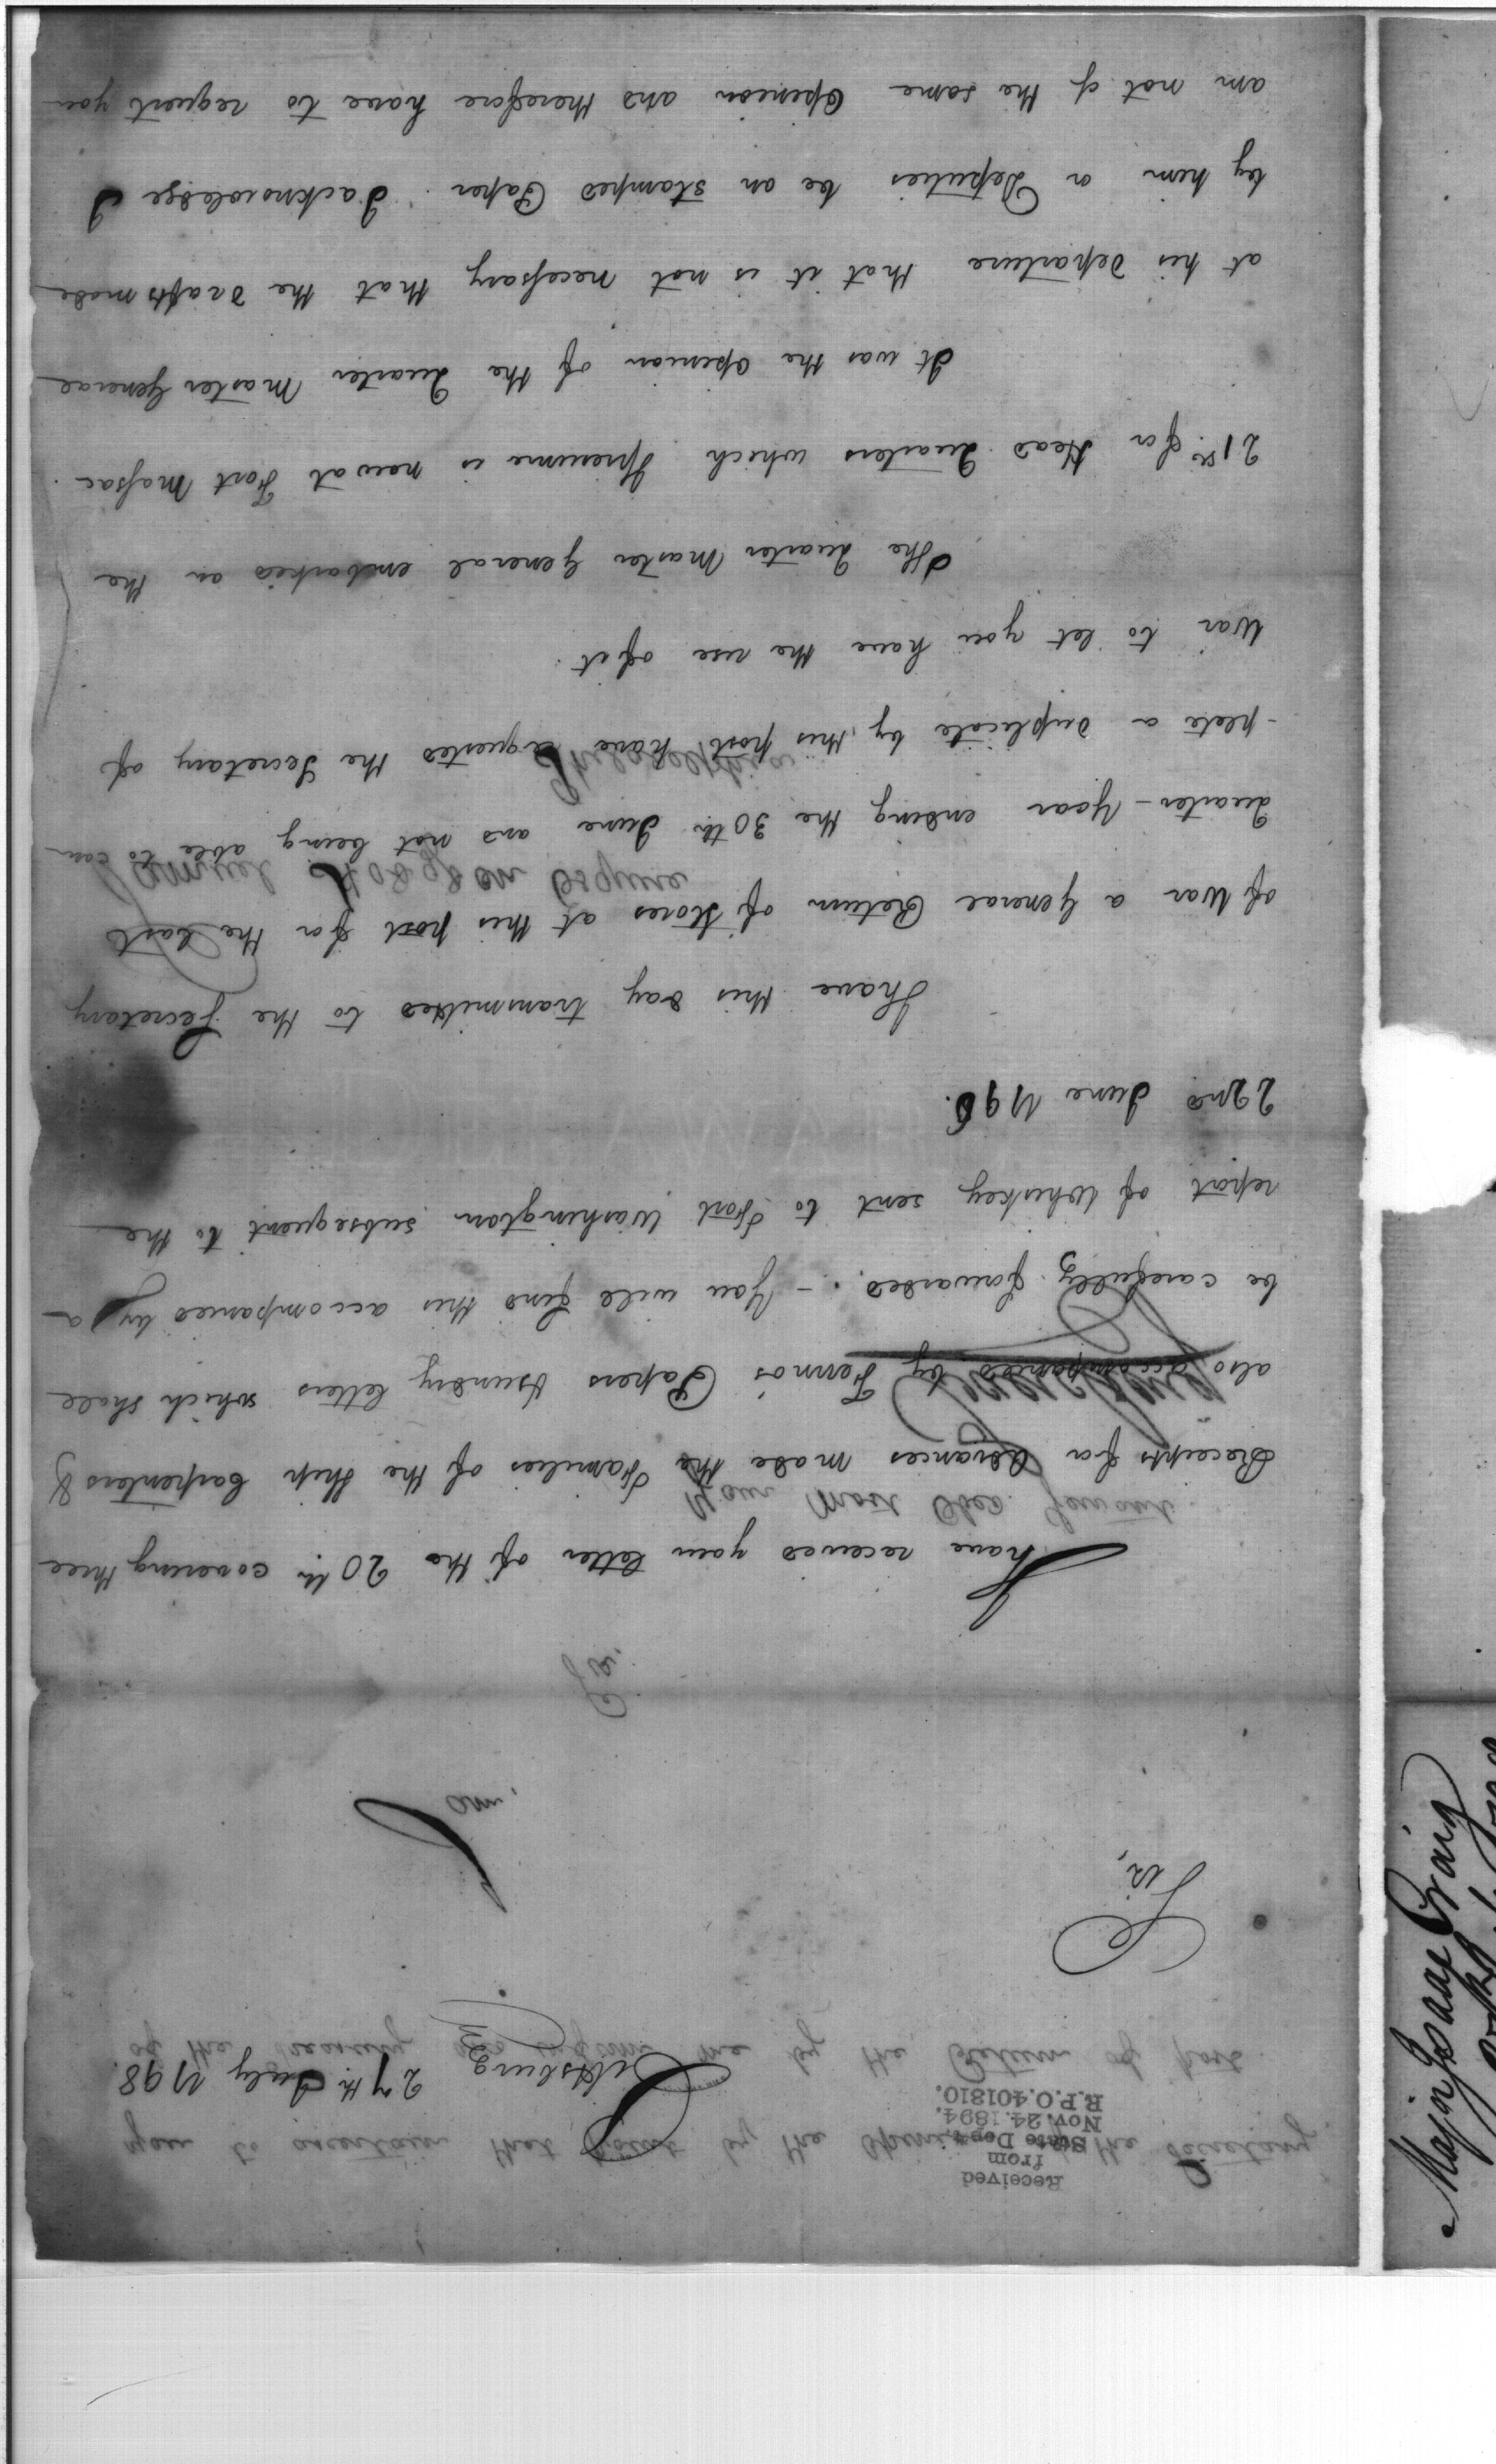 Received
from
State Dept.
Nov. 24. 1894.
R.P.O. 401810.
Pittsburg 27th July 1798.
Sir,
I have received your letter of the 20th covering three
Receipts for advances made the Families of the Ship Carpenters &
also accompanied by Fennos Papers & sundry letters which shall
be carefully forwarded. – You will find this accompanied by a
report of Whiskey sent to Fort Washington subsequent to the
22nd June 1798.
I have this day transmitted to the Secretary
of War a General Return of Stores at this post for the last
Quarter-Year ending the 30th June and not being able to com
-plete a duplicate by this post, have requested the Secretary of
War to let you have the use of it.
The Quarter Master General embarked on the
21st for Head Quarters which I presume is now at Fort Massac.
It was the Opinion of the Quarter Master General
at his departure that it is not necessary that the drafts made
by him or Deputies be on stamped Paper. I acknowledge I
am not of the same Opinion and therefore have to request you
you to ascertain that point by the Opinion of the Secretary
of the Treasury and inform me by the Return of post.
I am,
Sir,
Major Isaac Craig